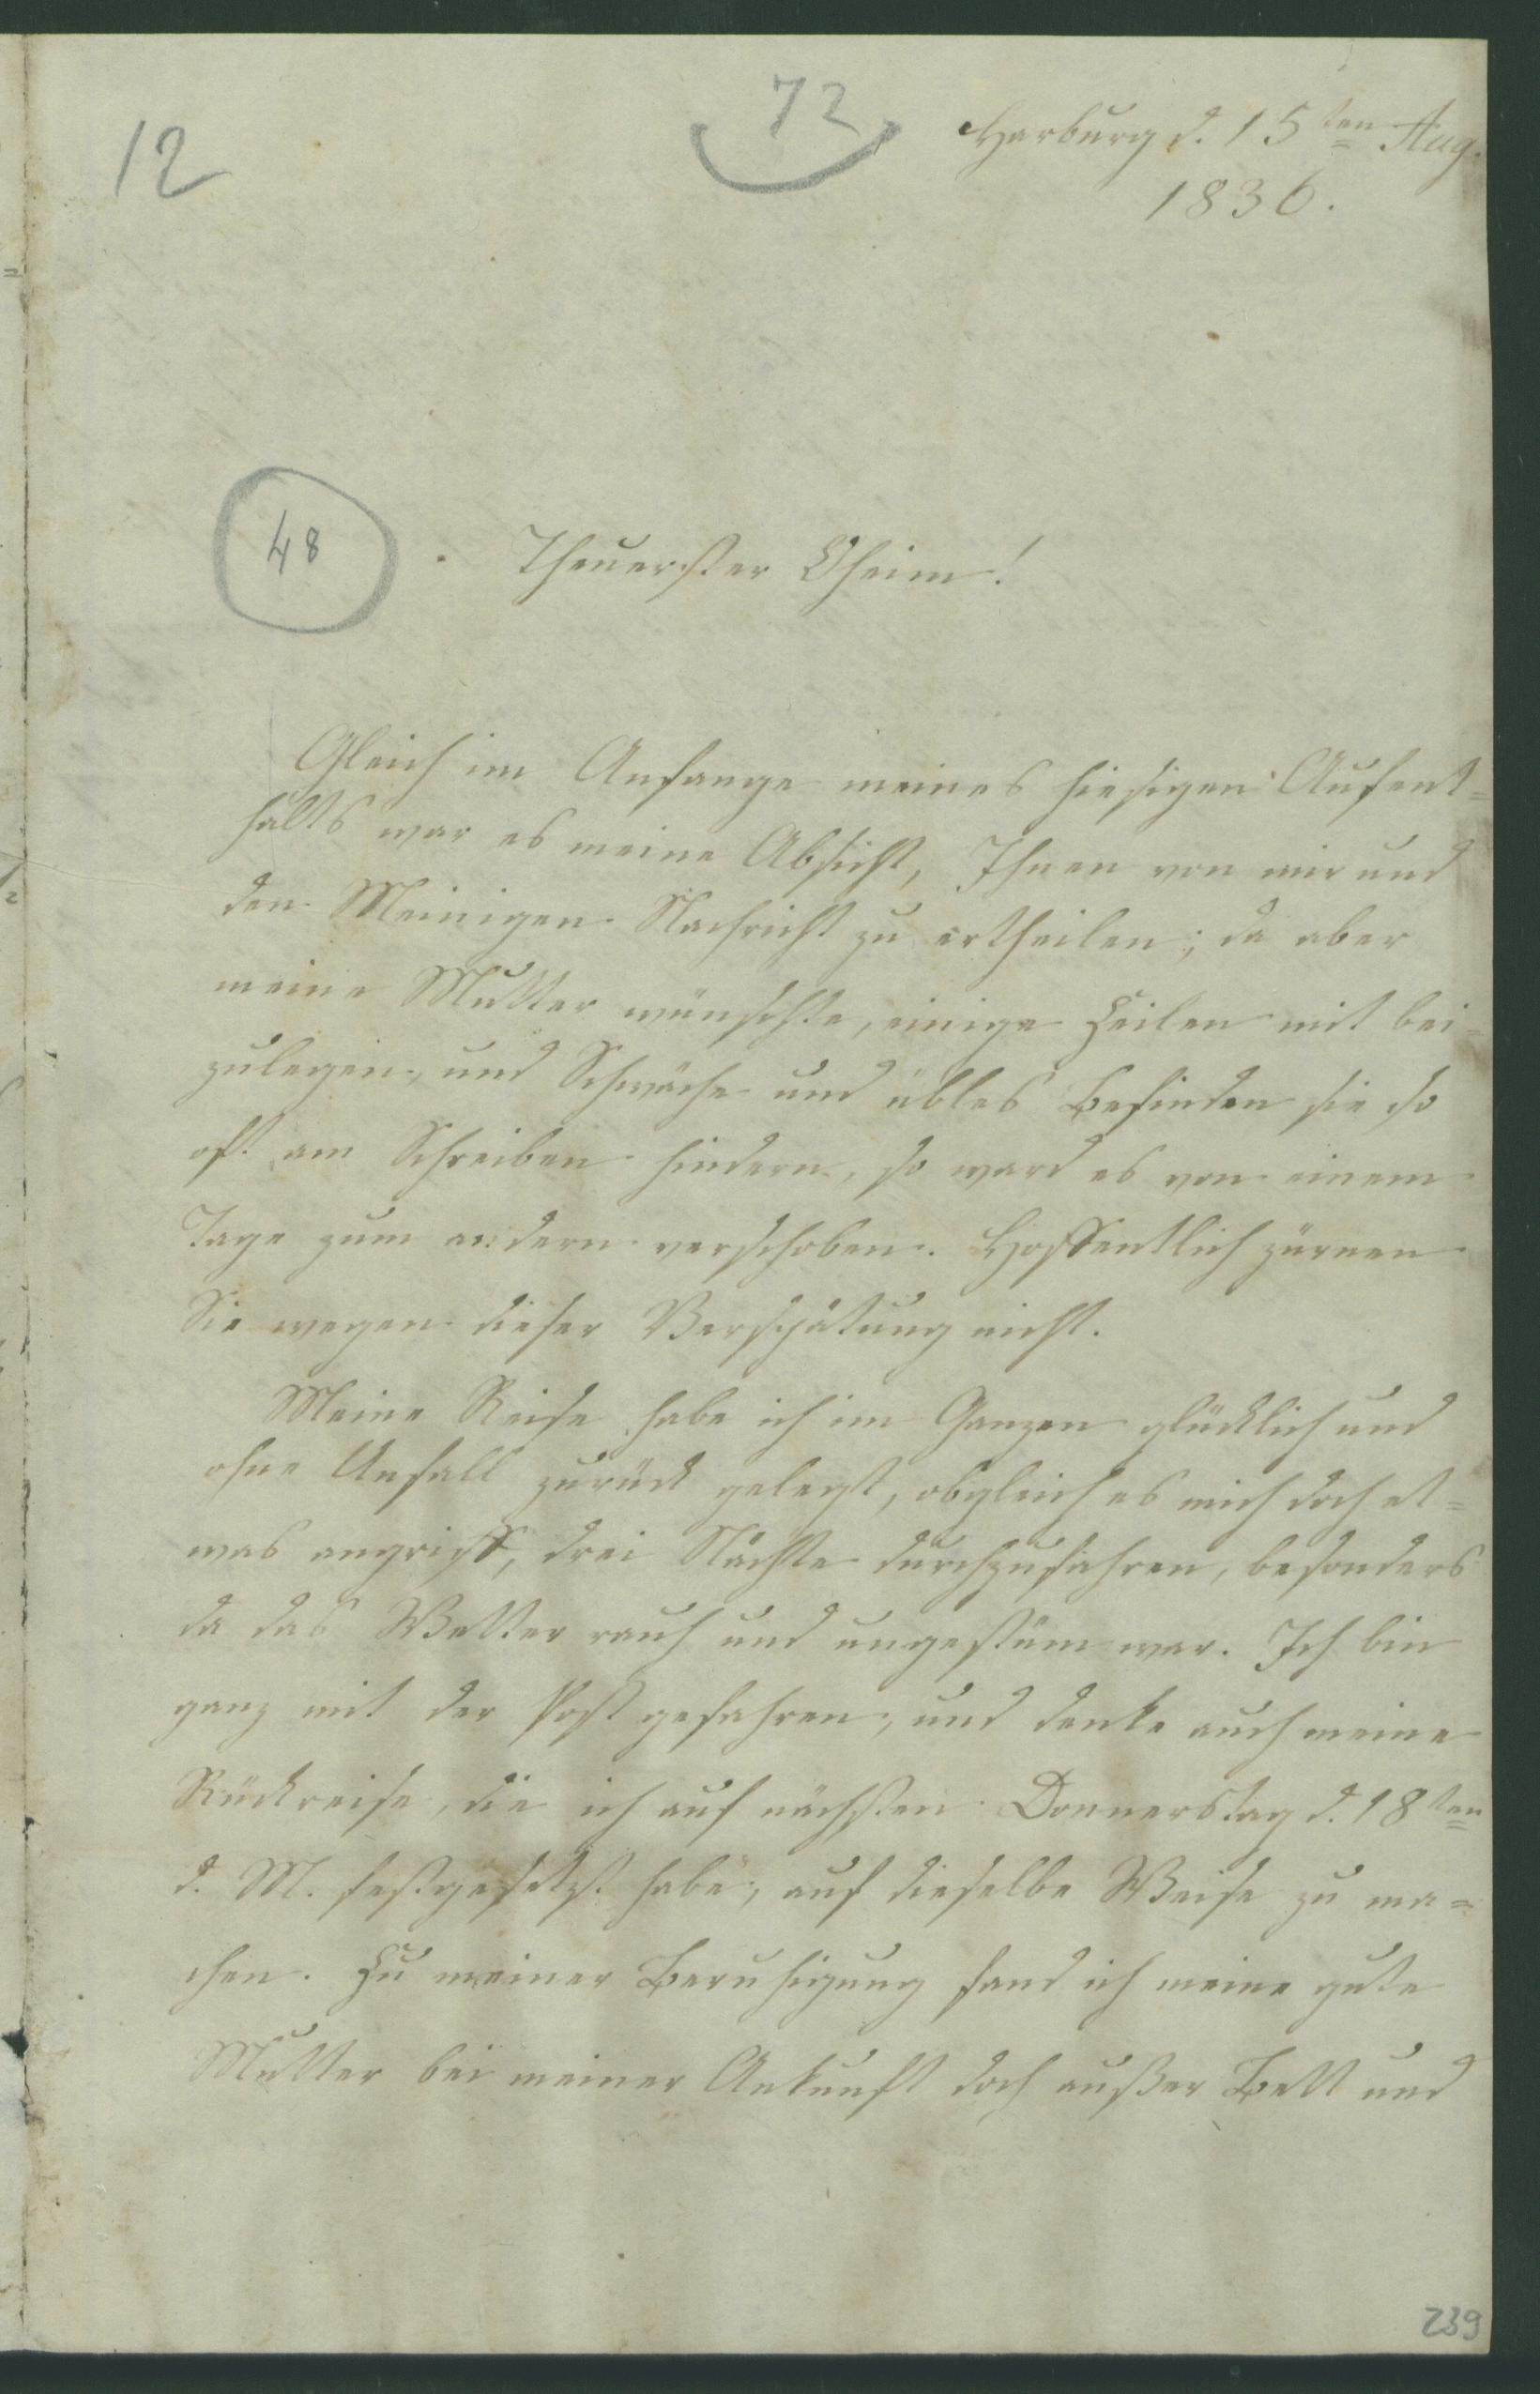 12
72
Harburg d. 15ten Aug.
1836.
48
Theuerster Oheim!
Gleich im Anfange meines hiesigen Aufent=
halts war es meine Absicht, Ihnen von mir und
den Meinigen Nachricht zu ertheilen; da aber
meine Mutter wünschte, einige Zeilen mit bei=
zulegen, und Schwäche und übles Befinden sie so
oft am Schreiben hindern, so ward es von einem
Tage zum andern verschoben. Hoffentlich zürnen
Sie wegen dieser Verspätung nicht.
Meine Reise habe ich im Ganzen glücklich und
ohne Unfall zurück gelegt, obgleich es mich doch et=
was angriff, drei Nächte durchzufahren, besonders
da das Wetter rauh und ungestüm war. Ich bin
ganz mit der Post gefahren, und denke auch meine
Rückreise, die ich auf nächsten Donnerstag d. 18ten
d. M. festgesetzt habe, auf dieselbe Weise zu ma=
chen. Zu meiner Beruhigung fand ich meine gute
Mutter bei meiner Ankunft doch außer Bett und
239